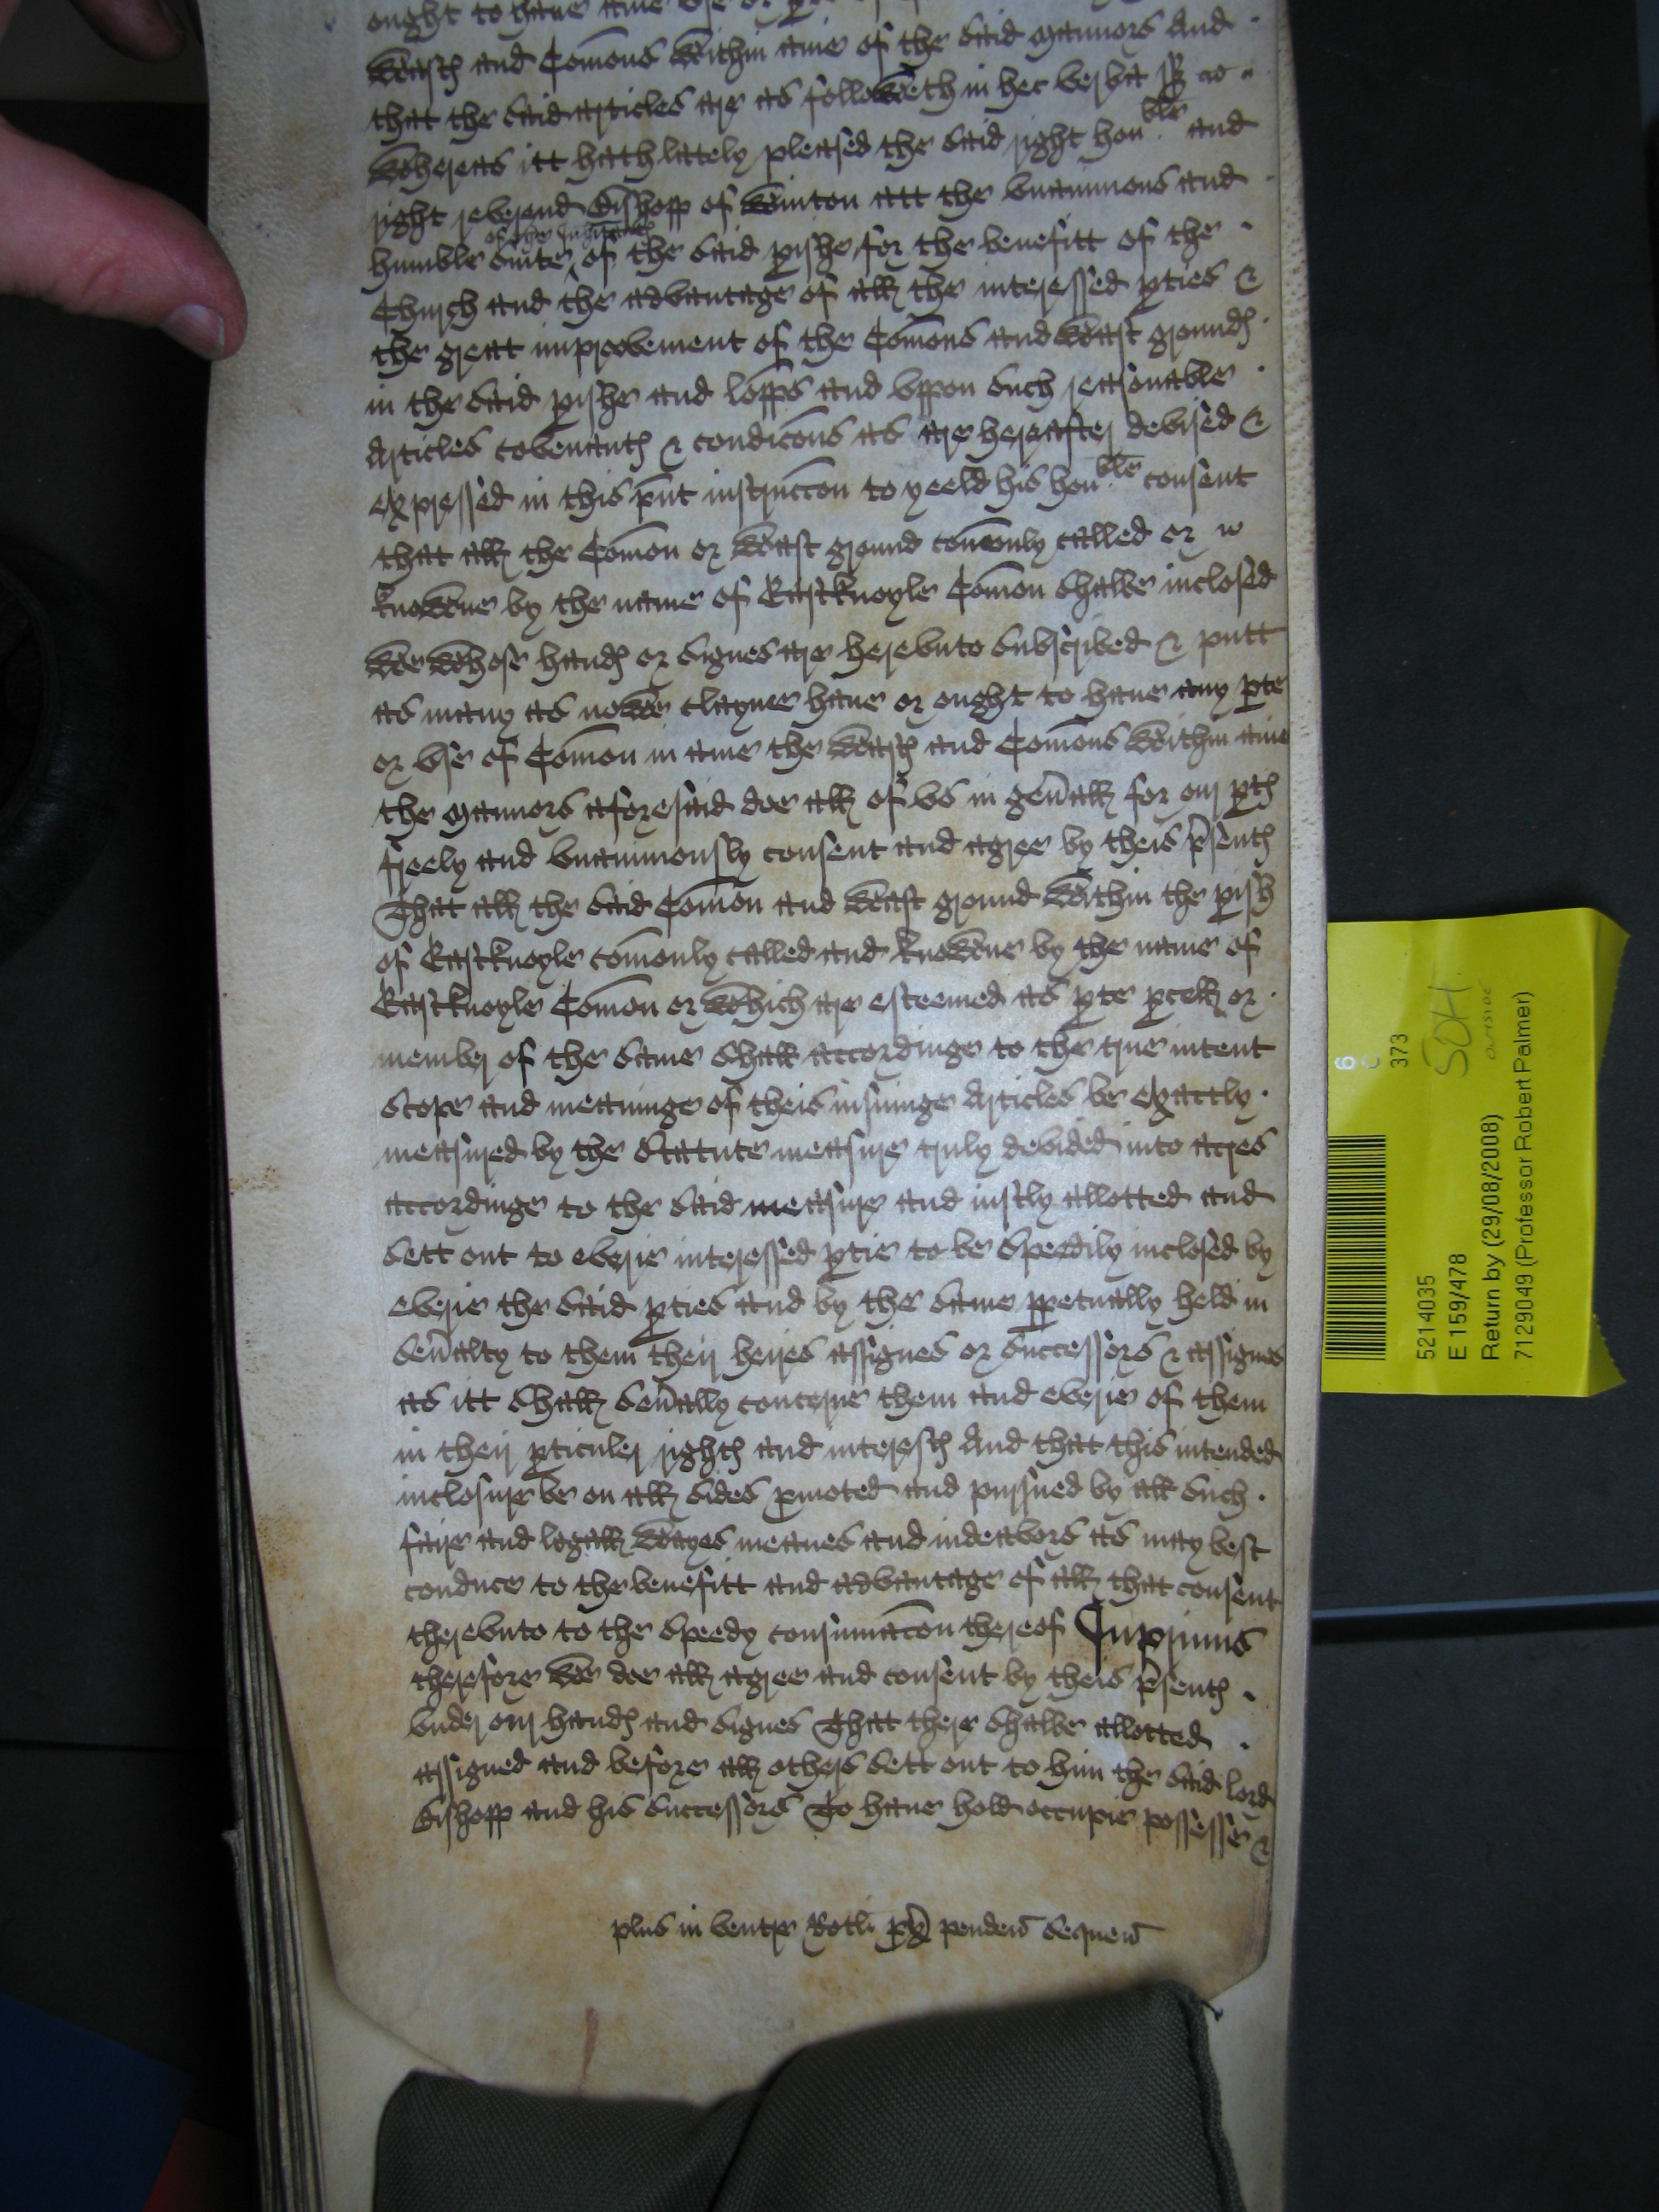 ought to haue anie vse or
Wasts and Comons within anie of the said Mannors And
that the said articles are as followeth in hec verba ss
Whereas itt hath lately pleased the said right honble and
right reverend Bishopp of Winton att the vnanimous and
humble suite of the Inhitants of the said pishe for the benefitt of the
Church and the advantage of all the interessed pties &
the great improovement of the Comons and Wast grounds
in the said pishe and vppon such reasonable
Articles covenants & condicons as are hereafter devised &
expressed in this pnt instruccon to yeeld his honble consent
that all the Comon or Wast ground comonly called or
knowne by the name of Eastknoyle Comon shalbe inclosed
Wee Whose hands or signes are herevnto subscribed & putt
as many as nowe clayme haue or ought to haue any pte
or vse of Comon in anie the Wasts and Comons within anie
the Mannors aforesaid doe all of vs in genall for our pts
freely and vnanimously consent and agree by theis psents
That all the said Comon and Wast ground within the pish
of Eastknoyle comonly called and knowne by the name of
Eastknoyle Comon or Which are esteemed as pte pcell or
member of the same shall accordinge to the true intent
scope and meaninge of theis insuinge Articles be exactly
measured by the Statute measure truly devided into acres
accordinge to the said measure and iustly allotted and
sett out to everie interessed ptie to be speedily inclosed by
everie the said pties and by the same ppetually held in
sevalty to them their heires assignes or successors & assignes
as itt shall sevally concerne them and everie of them
in their pticuler rights and interests And that this intended
inclosure be on all sides pmoted and pursued by all such
faire and legall Wayes meanes and indeavors as may best
conduce to the benefitt and advantage of all that consent
therevnto to the speedy consumacon thereof Inprimis
therefore Wee doe all agree and consent by theis psents
vnder our hands and signes That there shalbe allotted
assigned and before all others sett out to him the said lord
Bishopp and his successors To haue hold occupie possesse &
plus in ventre Rotli px penden sequen
6
C
373
SOH
outside
5214035
E 159/478
Return by (29/08/2008)
7129049 (Professor Robert Palmer)